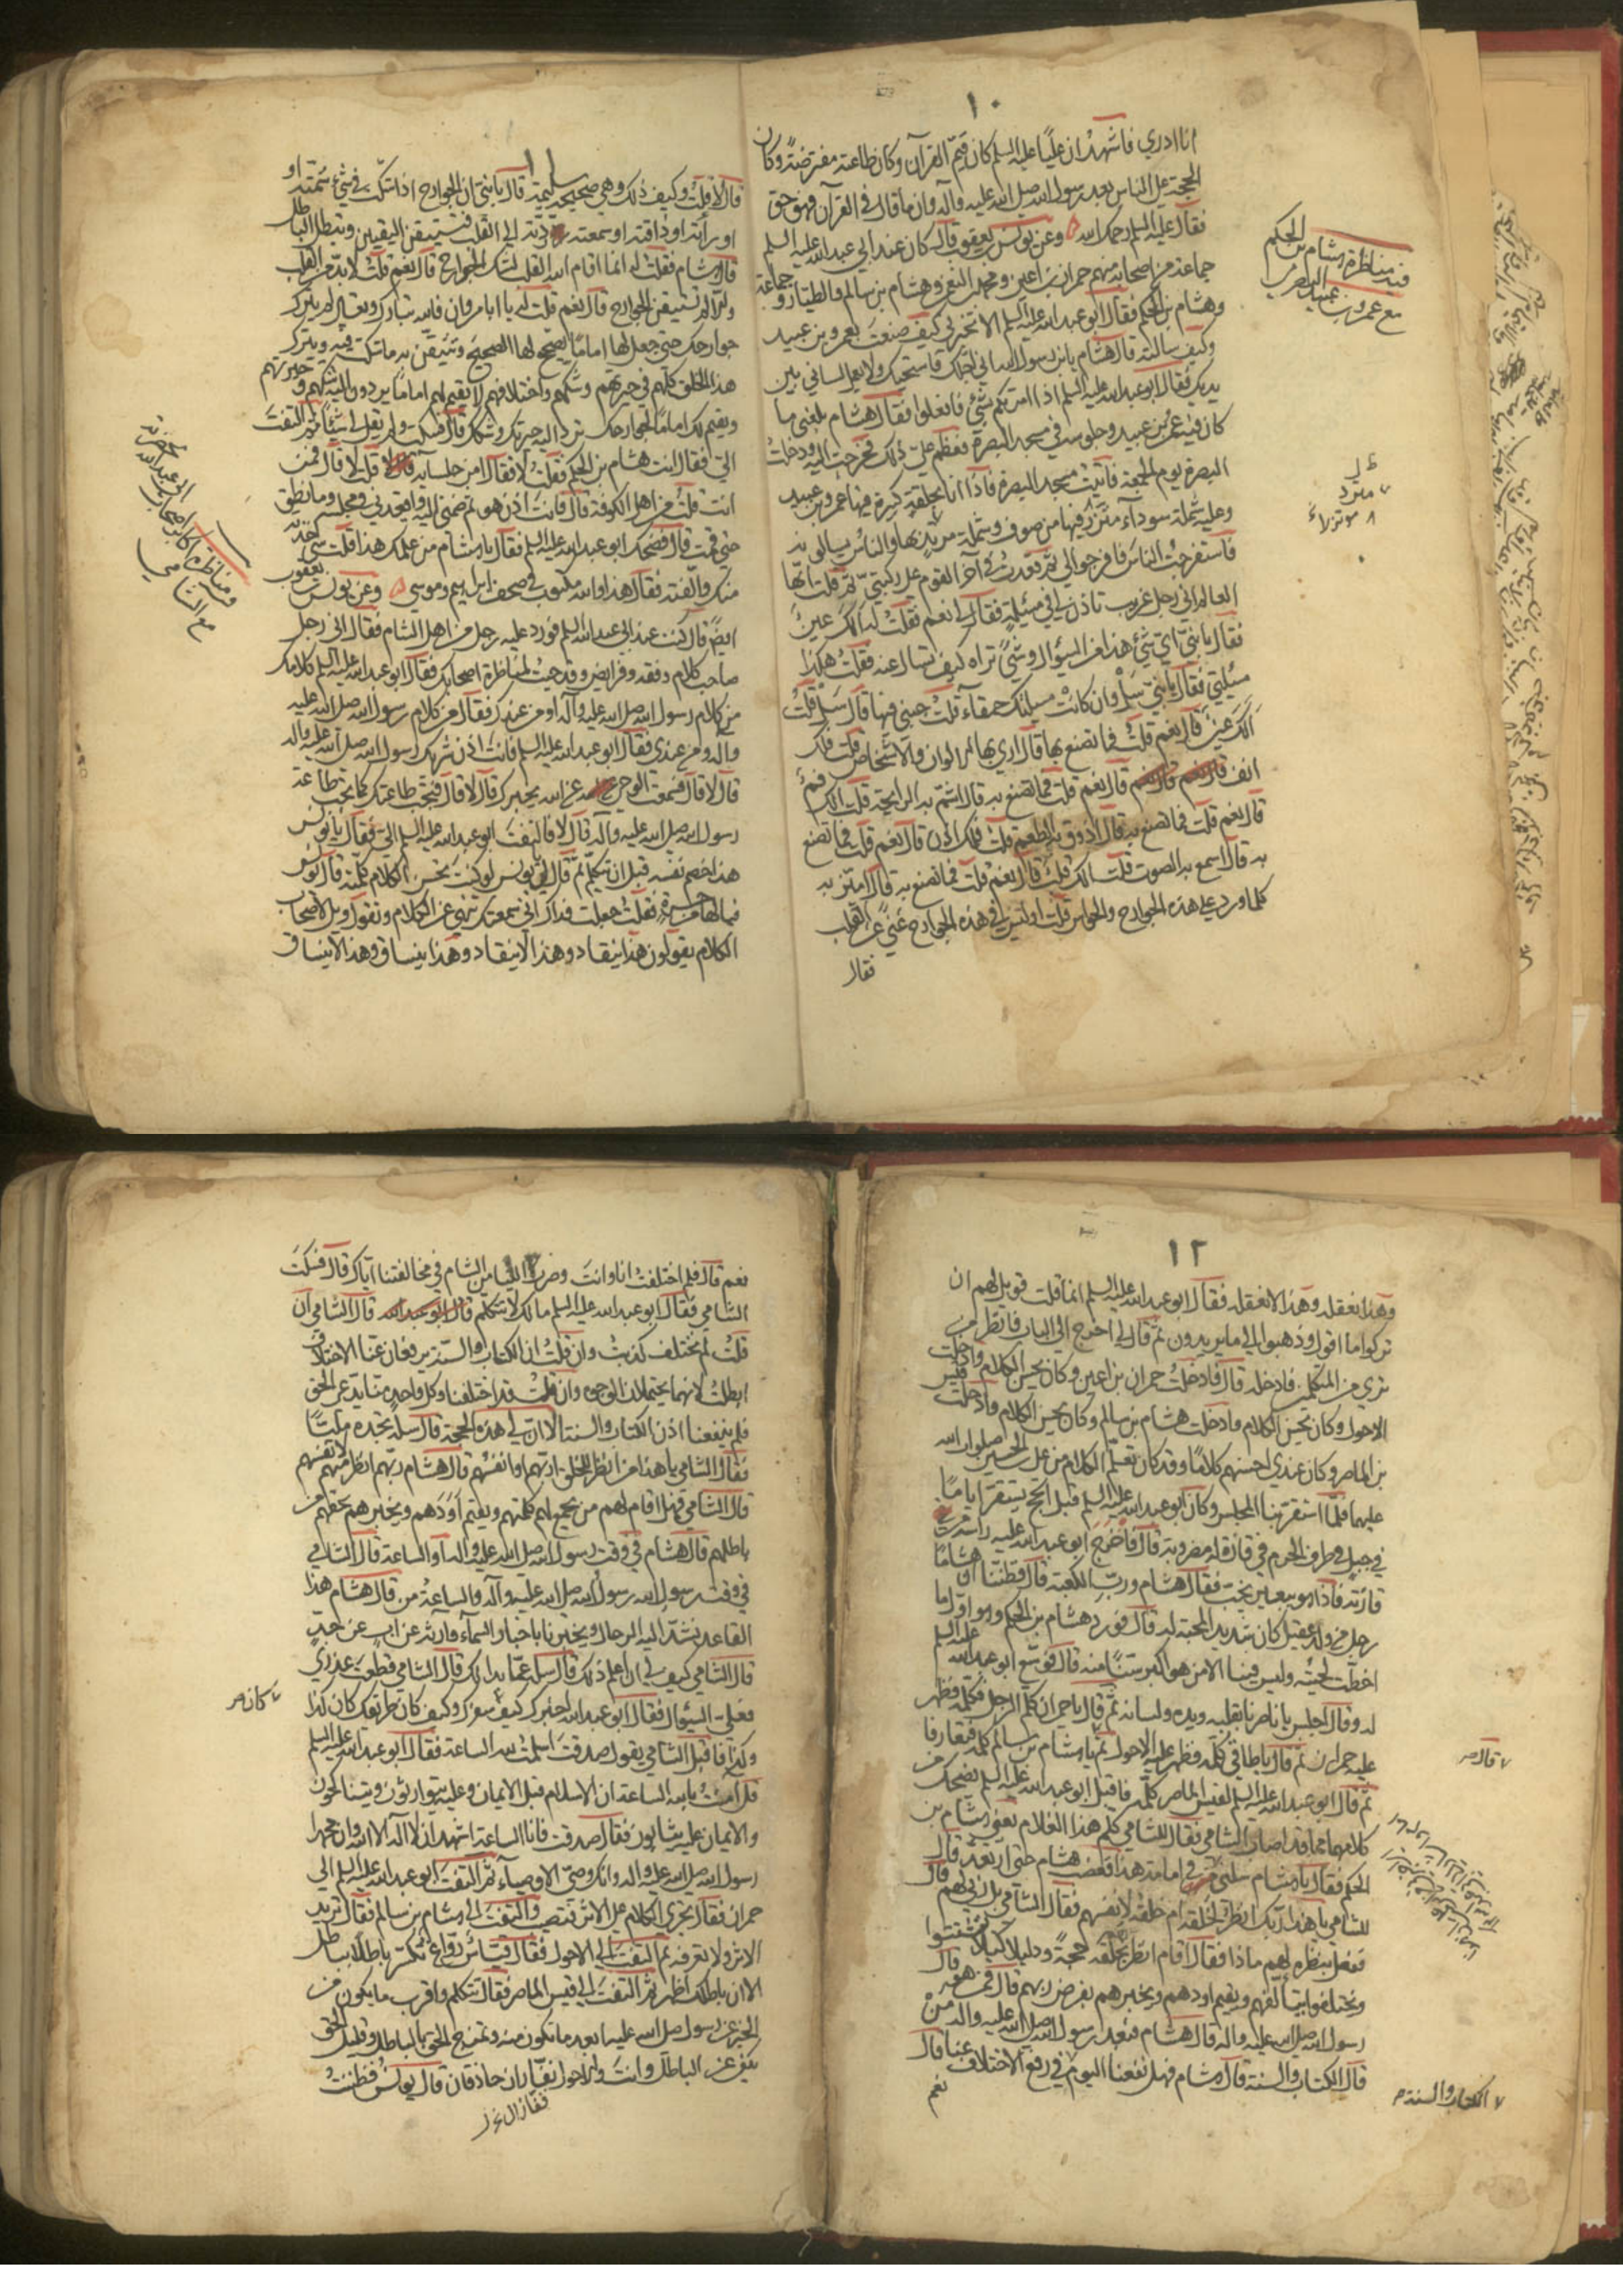 ١٠
انا ادري فاشهد ان عليًا عليه السلم كان قيّم القرآن وكان طاعته مفترضة وكان
الحجة على الناس بعد رسول الله صلى الله عليه وآله وان ما قال في القرآن فهو حق
فقال عليه السلم رحمك الله وعن يونس بن يعقوب قال كان عند ابي عبد الله عليه السلم
جماعة من اصحابه منهم حمران بن اعين ومحمد بن النعمن وهشام بن سالم والطيار وجماعة
وهشام بن الحكم فقال ابو عبد الله عليه السلم الا تخبرني كيف صنعت بعمرو بن عبيد
وكيف سالته قال هشام يابن رسول الله اني اجلك واستحيك ولا يعمل لساني بين
يديك فقال ابو عبد الله عليه السلم اذا امرتكم بشئ فافعلوا فقال هشام بلغني ما
كان فيه عمرو بن عبيد وجلوسه في مسجد البصرة فعظم علي ذلك فخرجت اليه ودخلت
البصرة يوم الجمعة فاتيت مسجد البصرة فاذا انا بحلقة كبيرة فيها عمرو بن عبيد
وعليه شملة سوداء متزر بها من صوف وشملة مرتد بها والناس يسالونه
فاستفرجت الناس فافرجوا لي ثم قعدت في آخر القوم على ركبتي ثم قلت ايها
العالم اني رجل غريب تاذن لي في مسئلة فقال لي نعم فقلت له الك عين
فقال يا بني اي شئ هذا من السؤال وشئ تراه كيف تسال عنه فقلت هكذا
مسئلتي فقال يا بني سل وان كانت مسئلتك حمقاء قلت اجبني فيها قال سل قلت
الك عين قال نعم قلت فما تصنع بها قال ارى بها الالوان والاشخاص قلت فلك
انف قال نعم قال نعم قال نعم قلت فما تصنع به قال اشم به الرايحة قلت الك فم
قال نعم قلت فما تصنع به قال اذوق به الطعم قلت فلك اذن قال نعم قلت فما تصنع
به قال اسمع به الصوت قلت الك قلب قال نعم قلت فما تصنع به قال اميز به
كلما ورد على هذه الجوارح والحواس قلت اوليس في هذه الجوارح غنى عن القلب
فقال
فيه مناظرة هشام بن الحكم
مع عمرو بن عبيد البصري
١١
قال لا قلت وكيف ذلك وهي صحيحة سليمة قال يا بني ان الجوارح اذا شكت في شئ شمته او
او رأته او ذاقته او سمعته ردته الى القلب فتستيقن اليقين وتبطل الباطل
قال هشام فقلت له انما اقام الله القلب لشك الجوارح قال نعم قلت لا بد من القلب
والا لم تستيقن الجوارح قال نعم قلت له يا ابا مروان فالله تبارك وتعالى لم يترك
جوارحك حتى جعل لها اماما يصحح لها الصحيح وتتيقن به ما شك فيه ويترك
هذا الخلق كلهم في حيرتهم وشكهم واختلافهم لا يقيم لهم اماما يردون اليه شكهم وحيرتهم
ويقيم لك اماما لجوارحك ترد اليه حيرتك وشكك قال فسكت ولم يقل لي شيئا ثم التفت
الي فقال انت هشام بن الحكم فقلت لا فقال امن جلسائه قلت لا قال فمن
انت قلت من اهل الكوفة قال فانت اذن هو ثم ضمني اليه واقعدني في مجلسه وما نطق
حتى قمت قال فضحك ابو عبد الله عليه السلم فقال يا هشام من علمك هذا قلت شئ اخذته
منك والفته فقال هذا والله مكتوب في صحف ابراهيم وموسى وعن يونس بن يعقوب
ايضا قال كنت عند ابي عبد الله عليه السلم فورد عليه رجل من اهل الشام فقال اني رجل
صاحب كلام وفقه وفرايض وقد جئت لمناظرة اصحابك فقال ابو عبد الله عليه السلم كلامك
من كلام رسول الله صلى الله عليه وآله او من عندك فقال من كلام رسول الله صلى الله عليه
وآله ومن عندي فقال ابو عبد الله عليه السلم فانت اذن شريك رسول الله صلى الله عليه وآله
قال لا قال فسمعت الوحي عن الله يخبرك قال لا قال فتجب طاعتك كما تجب طاعة
رسول الله صلى الله عليه وآله قال لا فالتفت ابو عبد الله عليه السلم الي فقال يا يونس
هذا خصم نفسه قبل ان يتكلم ثم قال يا يونس لو كنت تحسن الكلام كلمته قال يونس
فيالها من حسرة فقلت جعلت فداك اني سمعتك تنهى عن الكلام وتقول ويل لاصحاب
الكلام يقولون هذا ينقاد وهذا لا ينقاد وهذا ينساق وهذا لا ينساق
مع الشامي
١٢
وهذا نعقله وهذا لا نعقله فقال ابو عبد الله عليه السلم انما قلت فويل لهم ان
تركوا ما اقول وذهبوا الى ما يريدون ثم قال لي اخرج الى الباب فانظر من
ترى من المتكلمين فادخله قال فادخلت حمران بن اعين وكان يحسن الكلام وادخلت
الاحول وكان يحسن الكلام وادخلت هشام بن سالم وكان يحسن الكلام وادخلت قيس
بن الماصر وكان عندي احسنهم كلاما وقد كان تعلم الكلام من علي بن الحسين صلوات الله
عليهما فلما استقر بنا المجلس وكان ابو عبد الله عليه السلم قبل الحج يستقر اياما
في جبل في طرف الحرم في فازة له مضروبة قال فاخرج ابو عبد الله عليه راسه من
فازته فاذا هو ببعير يخب فقال هشام ورب الكعبة قال فظننا ان هشاما
رجل من ولد عقيل كان شديد المحبة له قال فورد هشام بن الحكم وهو اول ما
اختطت لحيته وليس فينا الا من هو اكبر سنا منه قال فوسع ابو عبد الله عليه السلم
له وقال اجلس يا ناصرنا بقلبه ويده ولسانه ثم قال يا حمران كلم الرجل فكلمه فظهر
عليه حمران ثم قال يا طاقي كلمه فظهر عليه الاحول ثم يا هشام بن سالم كلمه فتعارفا
ثم قال ابو عبد الله عليه السلم لقيس الماصر كلمه فاقبل ابو عبد الله عليه السلم يضحك من
كلامهما مما قد اصاب الشامي فقال للشامي كلم هذا الغلام يعني هشام بن
الحكم فقال يا هشام سلني في امامة هذا فغضب هشام حتى ارتعد ثم قال
للشامي يا هذا ربك انظر لخلقه ام خلقه لانفسهم فقال الشامي بل ربي لهم قال
ففعل بنظره لهم ماذا فقال اقام انظر بخلقه حجة ودليلا كيلا يتشتتوا
ويختلفوا يتألفهم ويقيم اودهم ويخبرهم بفرض ربهم قال فمن هو قال
رسول الله صلى الله عليه وآله قال هشام فبعد رسول الله صلى الله عليه وآله من
قال الكتاب والسنة قال هشام فهل نفعنا اليوم في رفع الاختلاف عنا قال
نعم
قال
الكتاب والسنة
نعم قال فلم اختلفت انا وانت وصرت الينا من الشام في مخالفتنا اياك قال فسكت
الشامي فقال ابو عبد الله عليه السلم مالك لا تتكلم قال ابو عبد الله قال الشامي ان
قلت لم نختلف كذبت وان قلت ان الكتاب والسنة يرفعان عنا الاختلاف
ابطلت لانهما يحتملان الوجوه وان قلت قد اختلفنا وكل واحد منا يدعي الحق
فلم ينفعنا اذن الكتاب والسنة الا ان لي هذه الحجة قال سله تجده مليا
فقال الشامي يا هذا من انظر للخلق اربهم او انفسهم قال هشام ربهم انظر منهم لانفسهم
قال الشامي فهل اقام لهم من يجمع لهم كلمتهم ويقيم اودهم ويخبرهم بحقهم من
باطلهم قال هشام في وقت رسول الله صلى الله عليه وآله او الساعة قال الشامي
في وقت رسول الله رسول الله صلى الله عليه وآله والساعة من قال هشام هذا
القاعد تشد اليه الرحال ويخبرنا باخبار السماء وراثة عن اب عن جد
قال الشامي كيف لي ان اعلم ذلك قال سله عما بدا لك قال الشامي قطعت عذري
فعلي السؤال فقال ابو عبد الله اخبرك كيف سفرك وكيف كان طريقك كان كذا
وكذا فاقبل الشامي يقول صدقت اسلمت لله الساعة فقال ابو عبد الله عليه السلم
قل آمنت بالله الساعة ان الاسلام قبل الايمان وعليه يتوارثون ويتناكحون
والايمان عليه يثابون فقال صدقت فانا الساعة اشهد ان لا اله الا الله وان محمدا
رسول الله صلى الله عليه وآله وانك وصي الاوصياء ثم التفت ابو عبد الله عليه السلم الى
حمران فقال تجري الكلام على الاثر فتصيب والتفت الى هشام بن سالم فقال تريد
الاثر ولا تعرفه ثم التفت الى الاحول فقال قياس رواغ تكسر باطلا بباطل
الا ان باطلك اظهر ثم التفت الى قيس الماصر فقال تتكلم واقرب ما يكون من
الخبر عن رسول صلى الله عليه ابعد ما تكون منه وتمزج الحق بالباطل وقليل الحق
يكفي عن الباطل وانت والاحول قفازان حاذقان قال يونس فظننت
كان